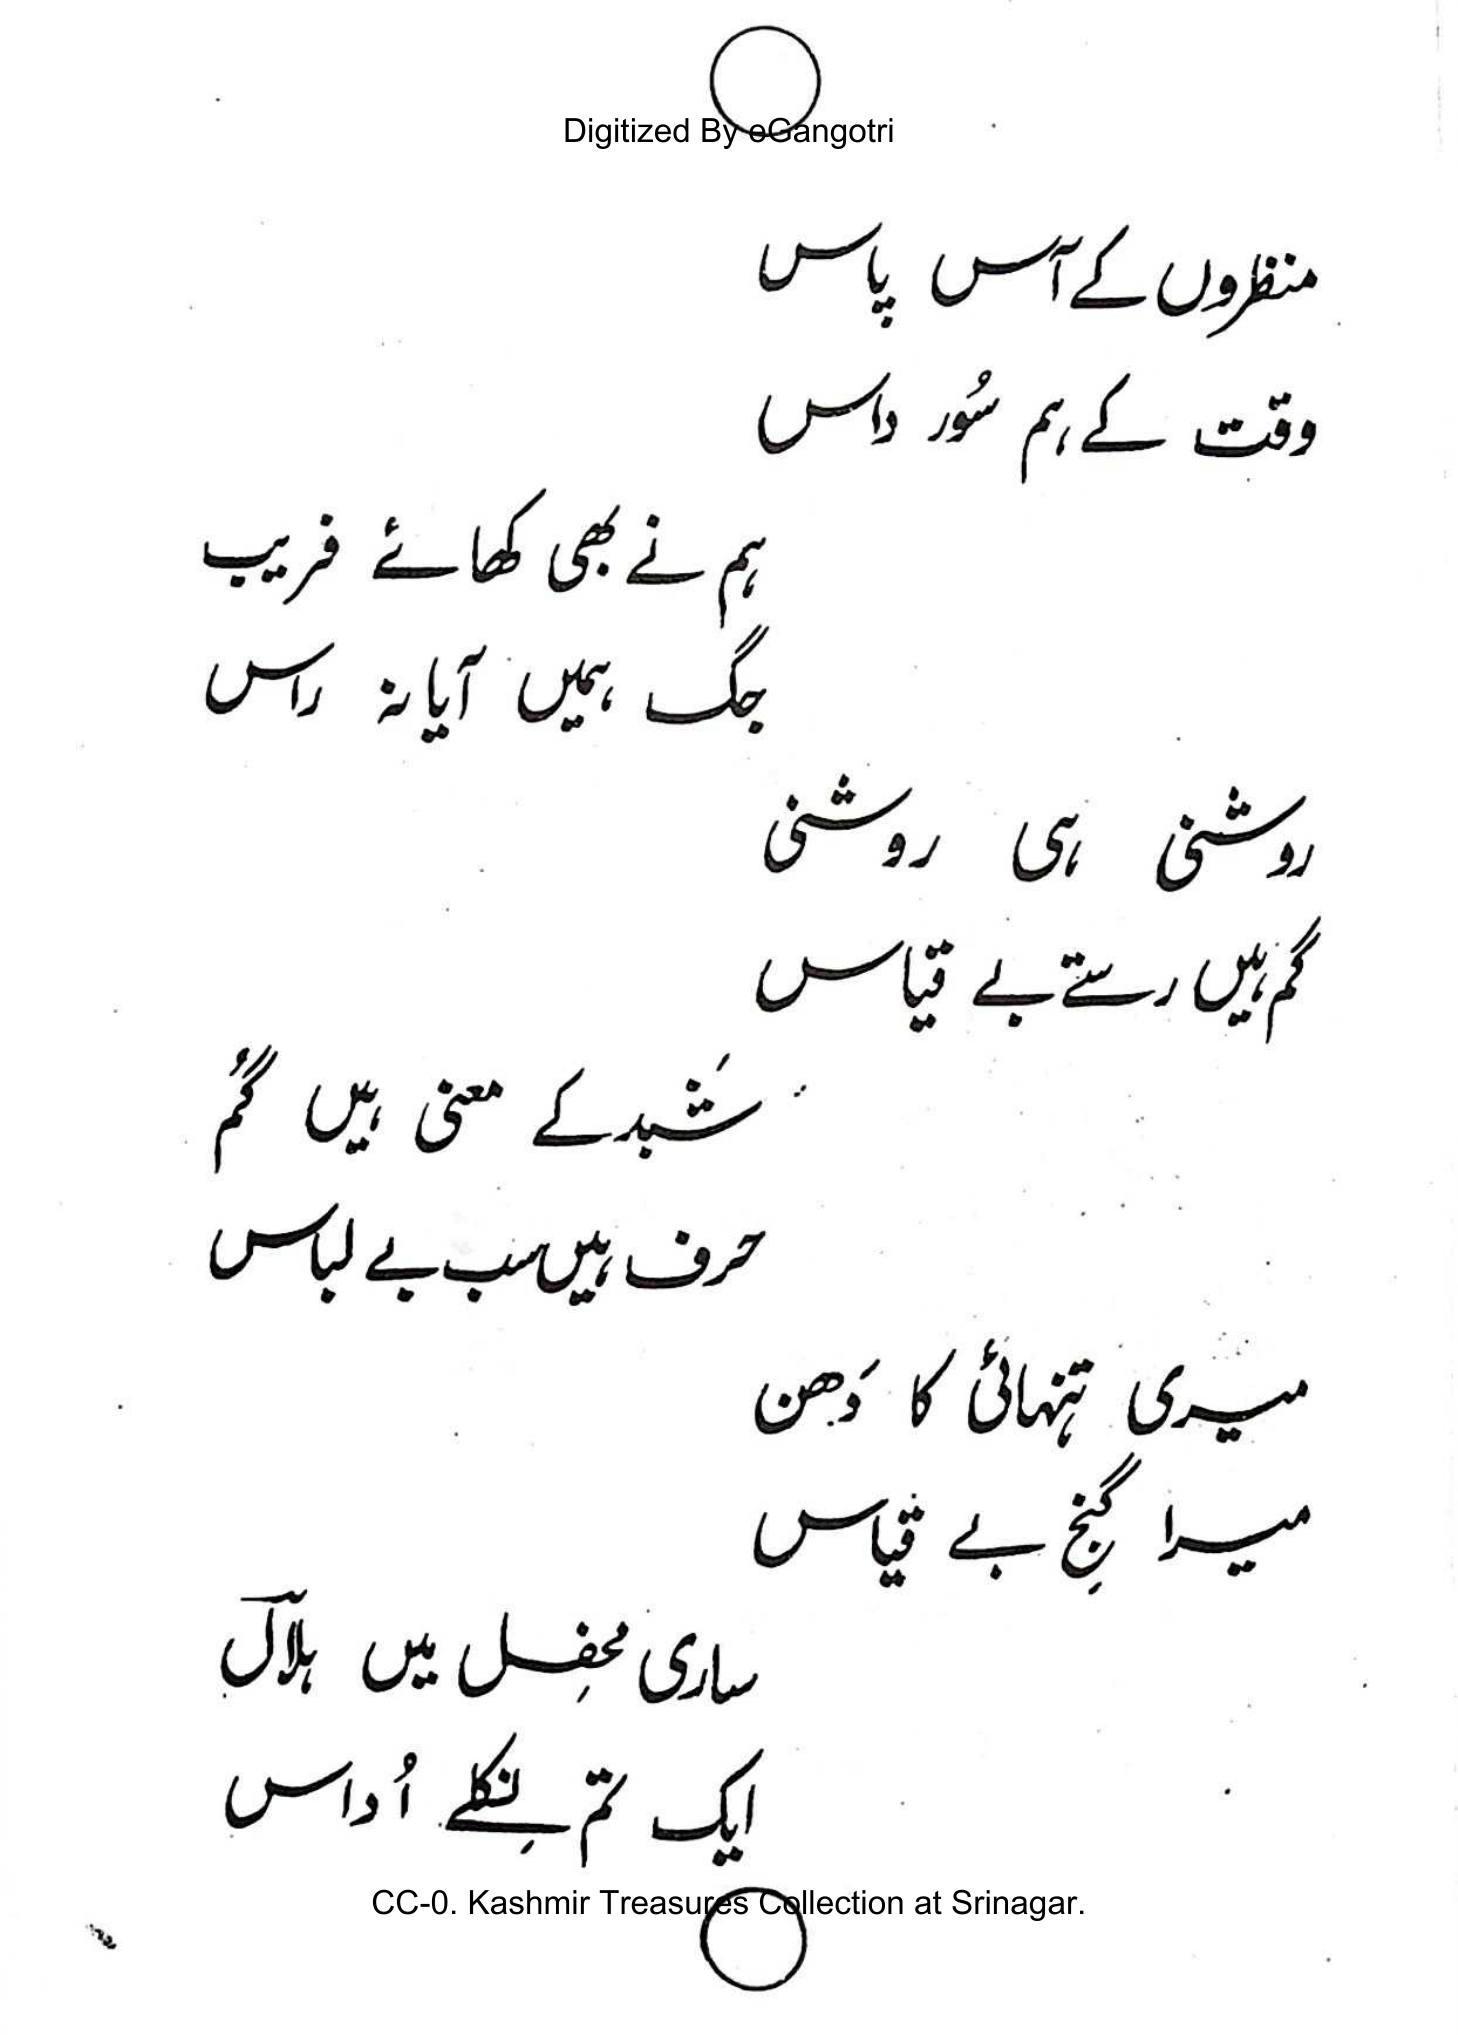 Digitized By eGangotri
منظروں کے آس پاس
وقت کے ہم سُور داس
ہم نے بھی کھائے فریب
جگ ہمیں آیا نہ راس
روشنی ہی روشنی
گم ہیں رستے بے قیاس
شَبد کے معنی ہیں گُم
حرف ہیں سب بے لباس
میری تنہائی کا دَھن
میرا گنجِ بے قیاس
ساری محفِل میں ہلال
ایک تم نِکلے اُداس
CC-0. Kashmir Treasures Collection at Srinagar.